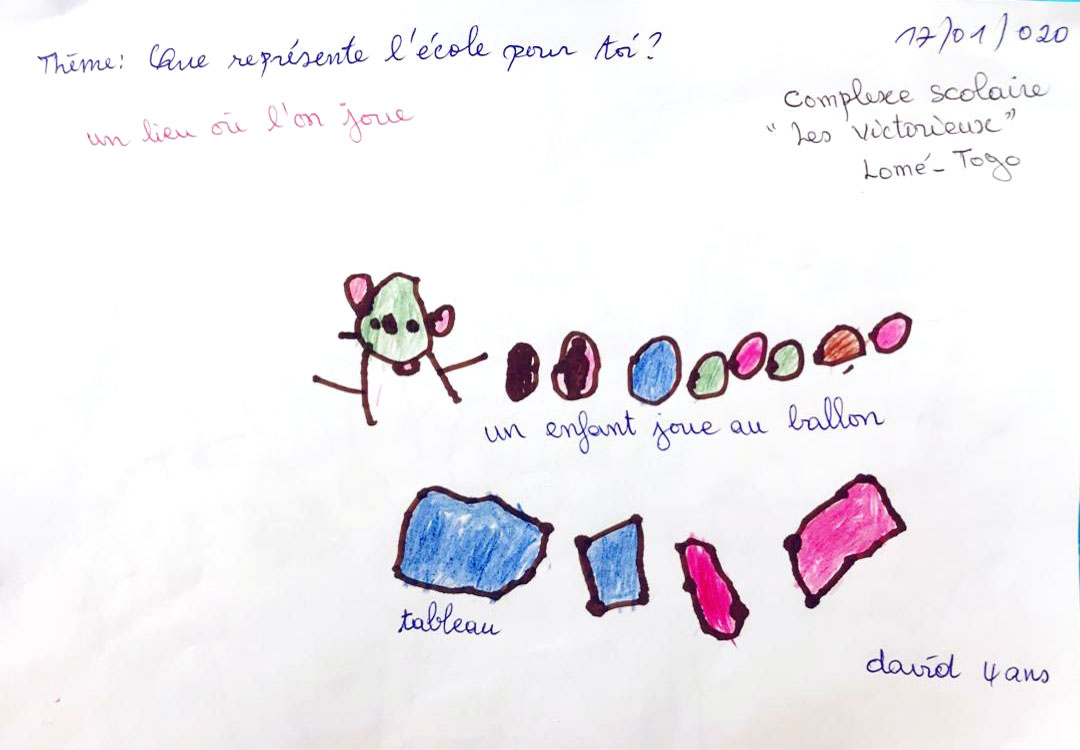 Thème: Que représente l'école pour toi?
17/01/020
un lieu où l'on joue
Complexe scolaire
"Les Victorieux"
Lomé - Togo
un enfant joue au ballon
tableau
david 4 ans